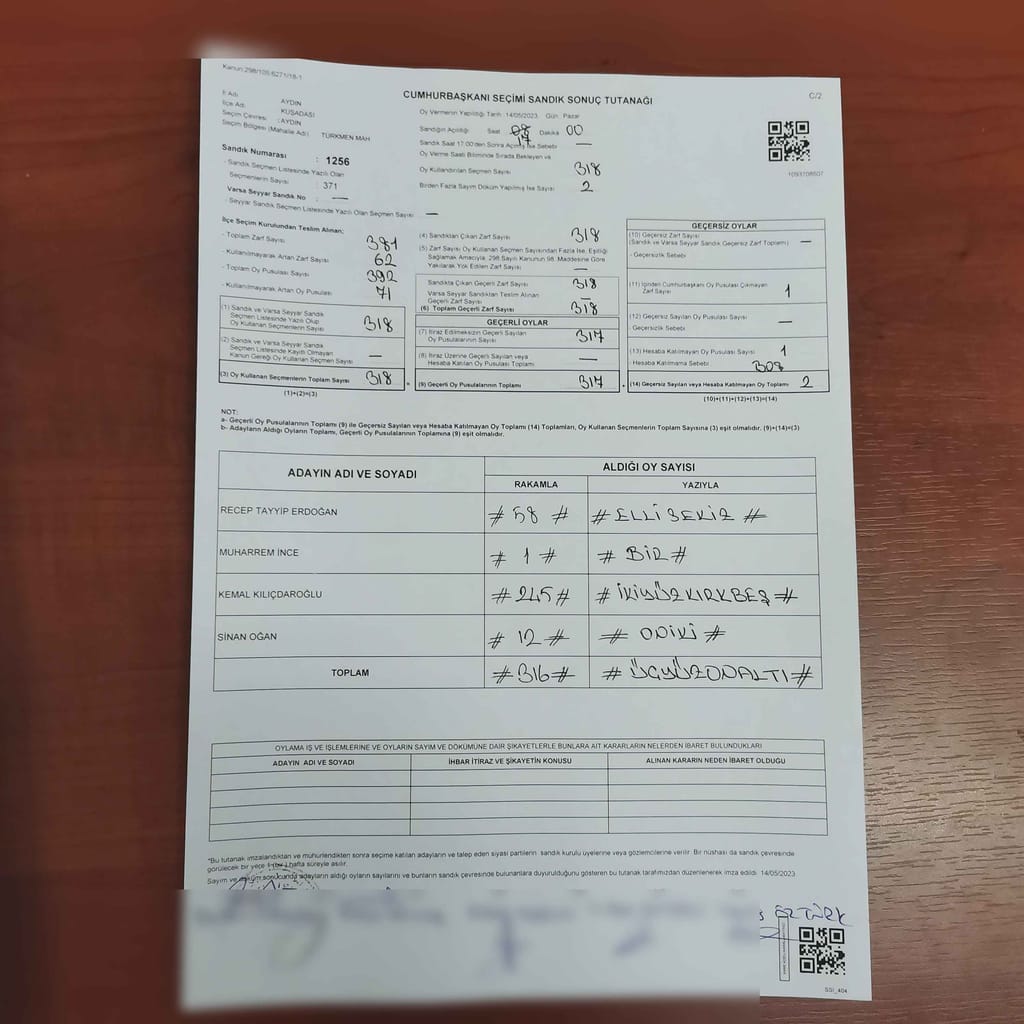 Kanun:298/105.6271/18-1
CUMHURBAŞKANI SEÇİMİ SANDIK SONUÇ TUTANAĞI
C/2
İl Adı : AYDIN
İlçe Adı : KUŞADASI
Seçim Çevresi : AYDIN
Seçim Bölgesi (Mahalle Adı) : TÜRKMEN MAH
Sandık Numarası : 1256
- Sandık Seçmen Listesinde Yazılı Olan
Seçmenlerin Sayısı : 371
Varsa Seyyar Sandık No : —
- Seyyar Sandık Seçmen Listesinde Yazılı Olan Seçmen Sayısı : —
Oy Vermenin Yapıldığı Tarih :14/05/2023 Gün: Pazar
Sandığın Açıldığı Saat 08 17 Dakika 00
Sandık Saat 17.00'den Sonra Açılmış İse Sebebi —
Oy Verme Saati Bitiminde Sırada Bekleyen ve
Oy Kullandırılan Seçmen Sayısı 318
Birden Fazla Sayım Döküm Yapılmış İse Sayısı 2
1093708607
İlçe Seçim Kurulundan Teslim Alınan;
- Toplam Zarf Sayısı 381
- Kullanılmayarak Artan Zarf Sayısı 62
- Toplam Oy Pusulası Sayısı 392
- Kullanılmayarak Artan Oy Pusulası 71
(1) Sandık ve Varsa Seyyar Sandık
Seçmen Listesinde Yazılı Olup
Oy Kullanan Seçmenlerin Sayısı 318
(2) Sandık ve Varsa Seyyar Sandık
Seçmen Listesinde Kayıtlı Olmayan
Kanun Gereği Oy Kullanan Seçmen Sayısı —
(3) Oy Kullanan Seçmenlerin Toplam Sayısı 318
(1)+(2)=(3)
(4) Sandıktan Çıkan Zarf Sayısı 318
(5) Zarf Sayısı Oy Kullanan Seçmen Sayısından Fazla İse, Eşitliği
Sağlamak Amacıyla, 298 Sayılı Kanunun 98. Maddesine Göre
Yakılarak Yok Edilen Zarf Sayısı —
Sandıkta Çıkan Geçerli Zarf Sayısı 318
Varsa Seyyar Sandıktan Teslim Alınan
Geçerli Zarf Sayısı —
(6) Toplam Geçerli Zarf Sayısı 318
GEÇERLİ OYLAR
(7) İtiraz Edilmeksizin Geçerli Sayılan
Oy Pusulalarının Sayısı 317
(8) İtiraz Üzerine Geçerli Sayılan veya
Hesaba Katılan Oy Pusulası Toplamı —
= (9) Geçerli Oy Pusulalarının Toplamı 317
GEÇERSİZ OYLAR
(10) Geçersiz Zarf Sayısı
(Sandık ve Varsa Seyyar Sandık Geçersiz Zarf Toplamı) —
- Geçersizlik Sebebi
(11) İçinden Cumhurbaşkanı Oy Pusulası Çıkmayan
Zarf Sayısı 1
(12) Geçersiz Sayılan Oy Pusulası Sayısı —
Geçersizlik Sebebi
(13) Hesaba Katılmayan Oy Pusulası Sayısı 1
- Hesaba Katılmama Sebebi
+ (14) Geçersiz Sayılan veya Hesaba Katılmayan Oy Toplamı 2
(10)+(11)+(12)+(13)=(14)
NOT:
a- Geçerli Oy Pusulalarının Toplamı (9) ile Geçersiz Sayılan veya Hesaba Katılmayan Oy Toplamı (14) Toplamları, Oy Kullanan Seçmenlerin Toplam Sayısına (3) eşit olmalıdır. (9)+(14)=(3)
b- Adayların Aldığı Oyların Toplamı, Geçerli Oy Pusulalarının Toplamına (9) eşit olmalıdır.
ADAYIN ADI VE SOYADI ALDIĞI OY SAYISI
RAKAMLA YAZIYLA
RECEP TAYYİP ERDOĞAN # 58 # # ELLİ SEKİZ #
MUHARREM İNCE # 1 # # BİR #
KEMAL KILIÇDAROĞLU # 245 # # İKİYÜZKIRKBEŞ #
SİNAN OĞAN # 12 # # ONİKİ #
TOPLAM # 316 # # ÜÇYÜZONALTI #
OYLAMA İŞ VE İŞLEMLERİNE VE OYLARIN SAYIM VE DÖKÜMÜNE DAİR ŞİKAYETLERLE BUNLARA AİT KARARLARIN NELERDEN İBARET BULUNDUKLARI
ADAYIN ADI VE SOYADI İHBAR İTİRAZ VE ŞİKAYETİN KONUSU ALINAN KARARIN NEDEN İBARET OLDUĞU
*Bu tutanak imzalandıktan ve mühürlendikten sonra seçime katılan adayların ve talep eden siyasi partilerin sandık kurulu üyelerine veya gözlemcilerine verilir. Bir nüshası da sandık çevresinde
görülecek bir yere 1 (bir) hafta süreyle asılır.
Sayım ve döküm sonucunda adayların aldığı oyların sayılarını ve bunların sandık çevresinde bulunanlara duyurulduğunu gösteren bu tutanak tarafımızdan düzenlenerek imza edildi. 14/05/2023
ÖZTÜRK
SSI_404